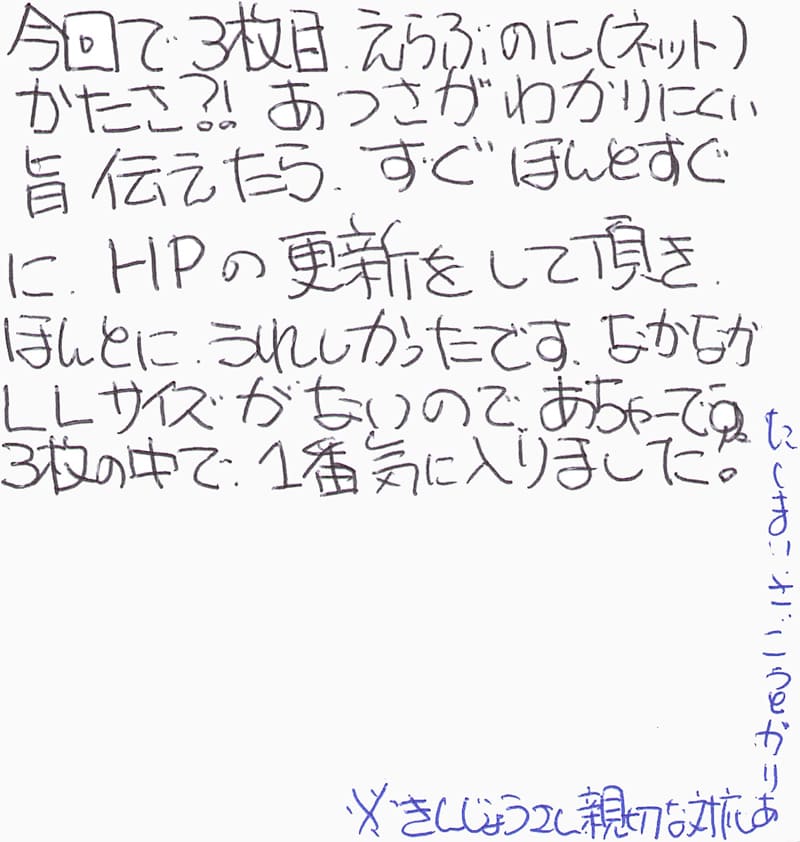 今回で3枚目.えらぶのに(ネット)
かたさ?!あつさがわかりにくい
旨伝えたら.すぐほんとすぐ
に.HPの更新をして頂き.
ほんとに.うれしかったです.なかなか
LLサイズがないので.あちゃーでの
3枚の中で.1番気に入りました。
※きんじょうさん親切な対応あ
りがとうございました